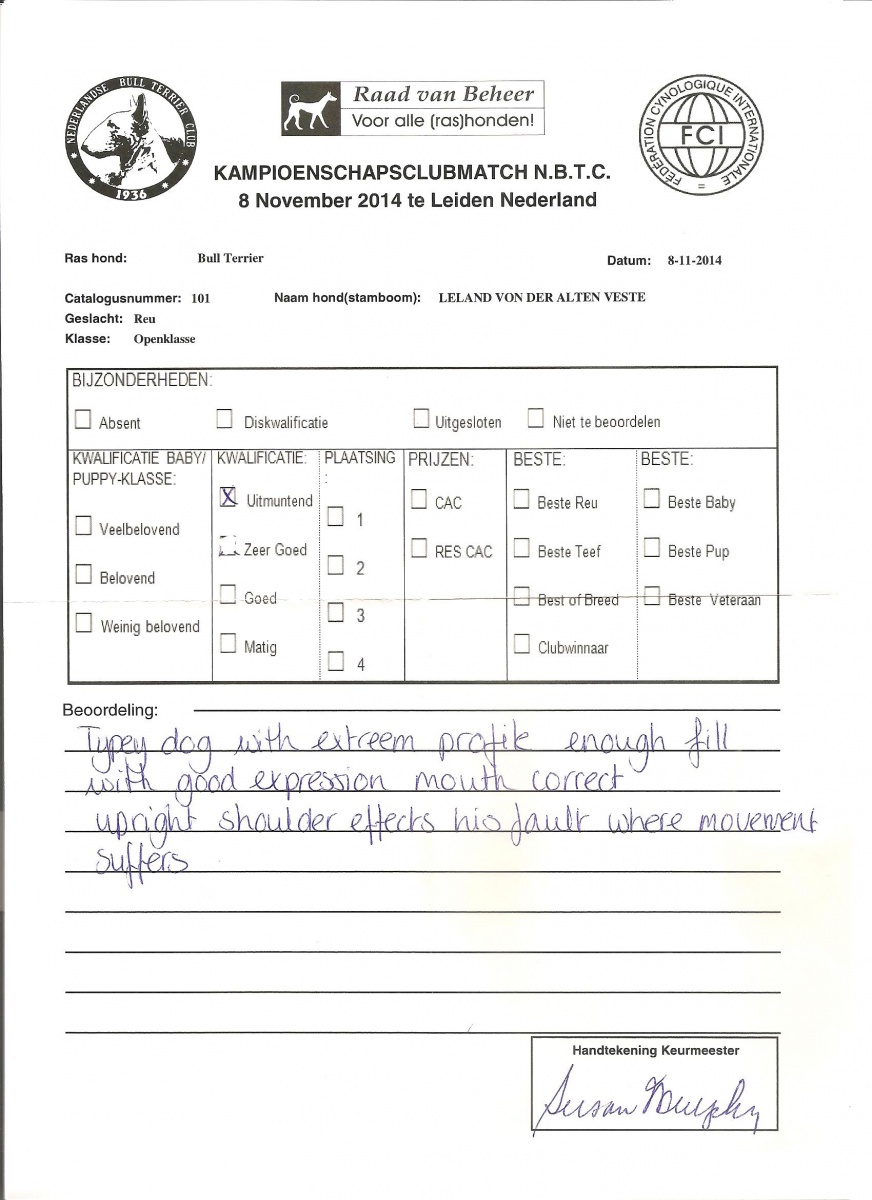 NEDERLANDSE BULL TERRIER CLUB
1936
Raad van Beheer
Voor alle (ras)honden!
FÉDÉRATION CYNOLOGIQUE INTERNATIONALE
FCI
KAMPIOENSCHAPSCLUBMATCH N.B.T.C.
8 November 2014 te Leiden Nederland
Ras hond: Bull Terrier Datum: 8-11-2014
Catalogusnummer: 101 Naam hond(stamboom): LELAND VON DER ALTEN VESTE
Geslacht: Reu
Klasse: Openklasse
BIJZONDERHEDEN:
Absent Diskwalificatie Uitgesloten Niet te beoordelen
KWALIFICATIE BABY/
PUPPY-KLASSE:
Veelbelovend
Belovend
Weinig belovend
KWALIFICATIE:
X Uitmuntend
Zeer Goed
Goed
Matig
PLAATSING
:
1
2
3
4
PRIJZEN:
CAC
RES CAC
BESTE:
Beste Reu
Beste Teef
Best of Breed
Clubwinnaar
BESTE:
Beste Baby
Beste Pup
Beste Veteraan
Beoordeling:
Typey dog with extreem profile enough fill
with good expression mouth correct
upright shoulder effects his fault where movement
suffers
Handtekening Keurmeester
Susan Murphy